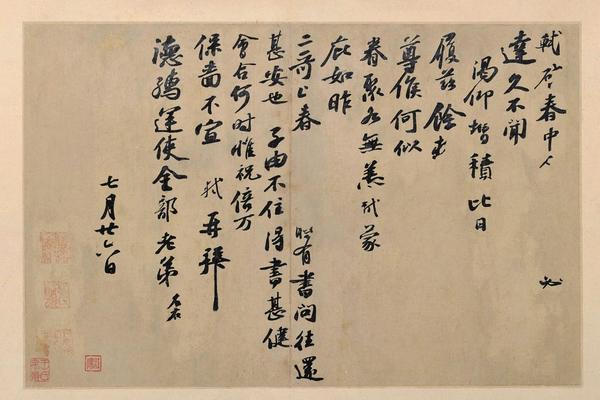 軾啓春中 必
達久不聞
渴仰增積比日
履茲餘
尊候何似
眷聚各無恙軾蒙
庇如昨
二哥上春 時有書問往還
甚安也子由不住得書甚健
會合何時惟祝倍万
保嗇不宣 軾再拜
德孺運使金部老弟
七月廿六日